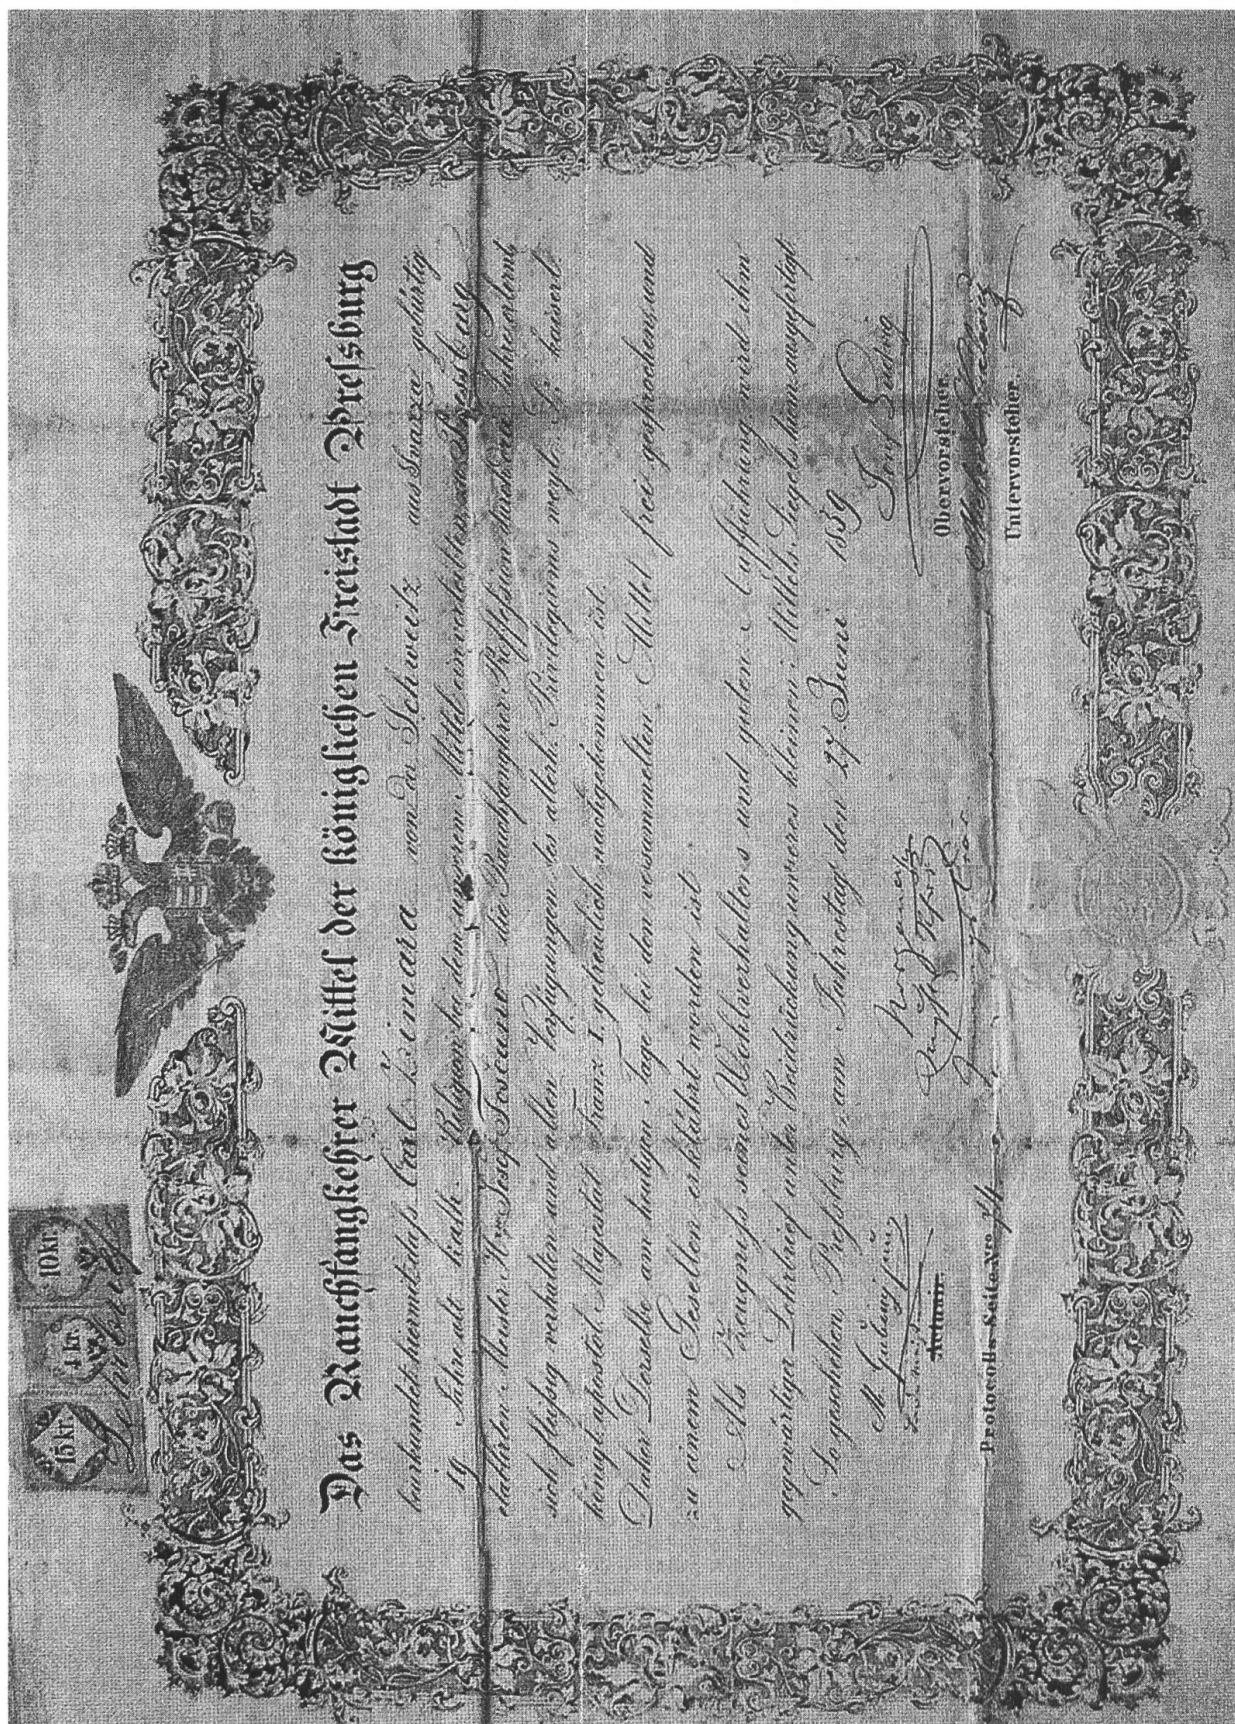 15 kr.
4 kr.
10 kr.
Das Rauchfangkehrer Mittel der königlichen Freistadt Pressburg
beurkundet hiermit, dass Carl von der Schweitz aus gebürtig
19 Jahre alt kath. Religion bei dem unserem Mittel einverleibten in Pressburg
etablirten Meister Hrn Josef Toscano die Rauchfangkehrer Profession durch drei Jahre erlernt
sich fleissig verhalten und allen Verfügungen des allerh. Privilegiums weyl. Sr. kaiserl.
königl. apostol. Majestät Franz I. getreulich nachgekommen ist.
Daher Derselbe am heutigen Tage bei dem versammelten Mittel frei gesprochen, und
zu einem Gesellen erklährt worden ist
Als Zeugniss seines Wohlverhaltens und guten Aufführung wird ihm
gegenwärtiger Lehrbrief unter Beidrückung unseres kleinern Mittels Siegels hinausgefertigt.
So geschehen, Pressburg, am Jahrestag den 27 Juni 1889
Josef
Obervorsteher
Actuair.
Untervorsteher.
Protocolls Seite Nro 74